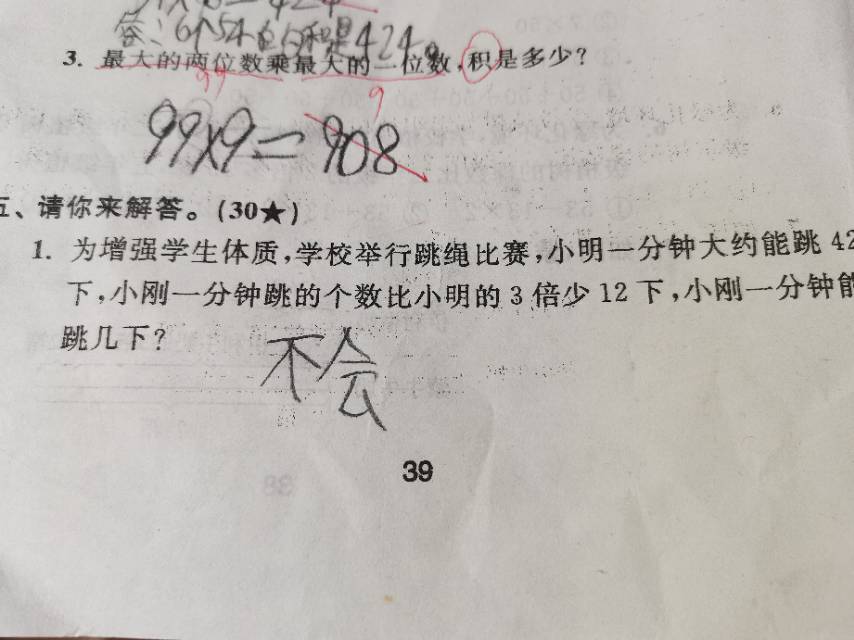 答:6个54的和是424。
3. 最大的两位数乘最大的一位数,积是多少?
99 9
99×9=908
五、请你来解答。(30★)
1. 为增强学生体质,学校举行跳绳比赛,小明一分钟大约能跳 42
下,小刚一分钟跳的个数比小明的 3 倍少 12 下,小刚一分钟能
跳几下?
不会
39